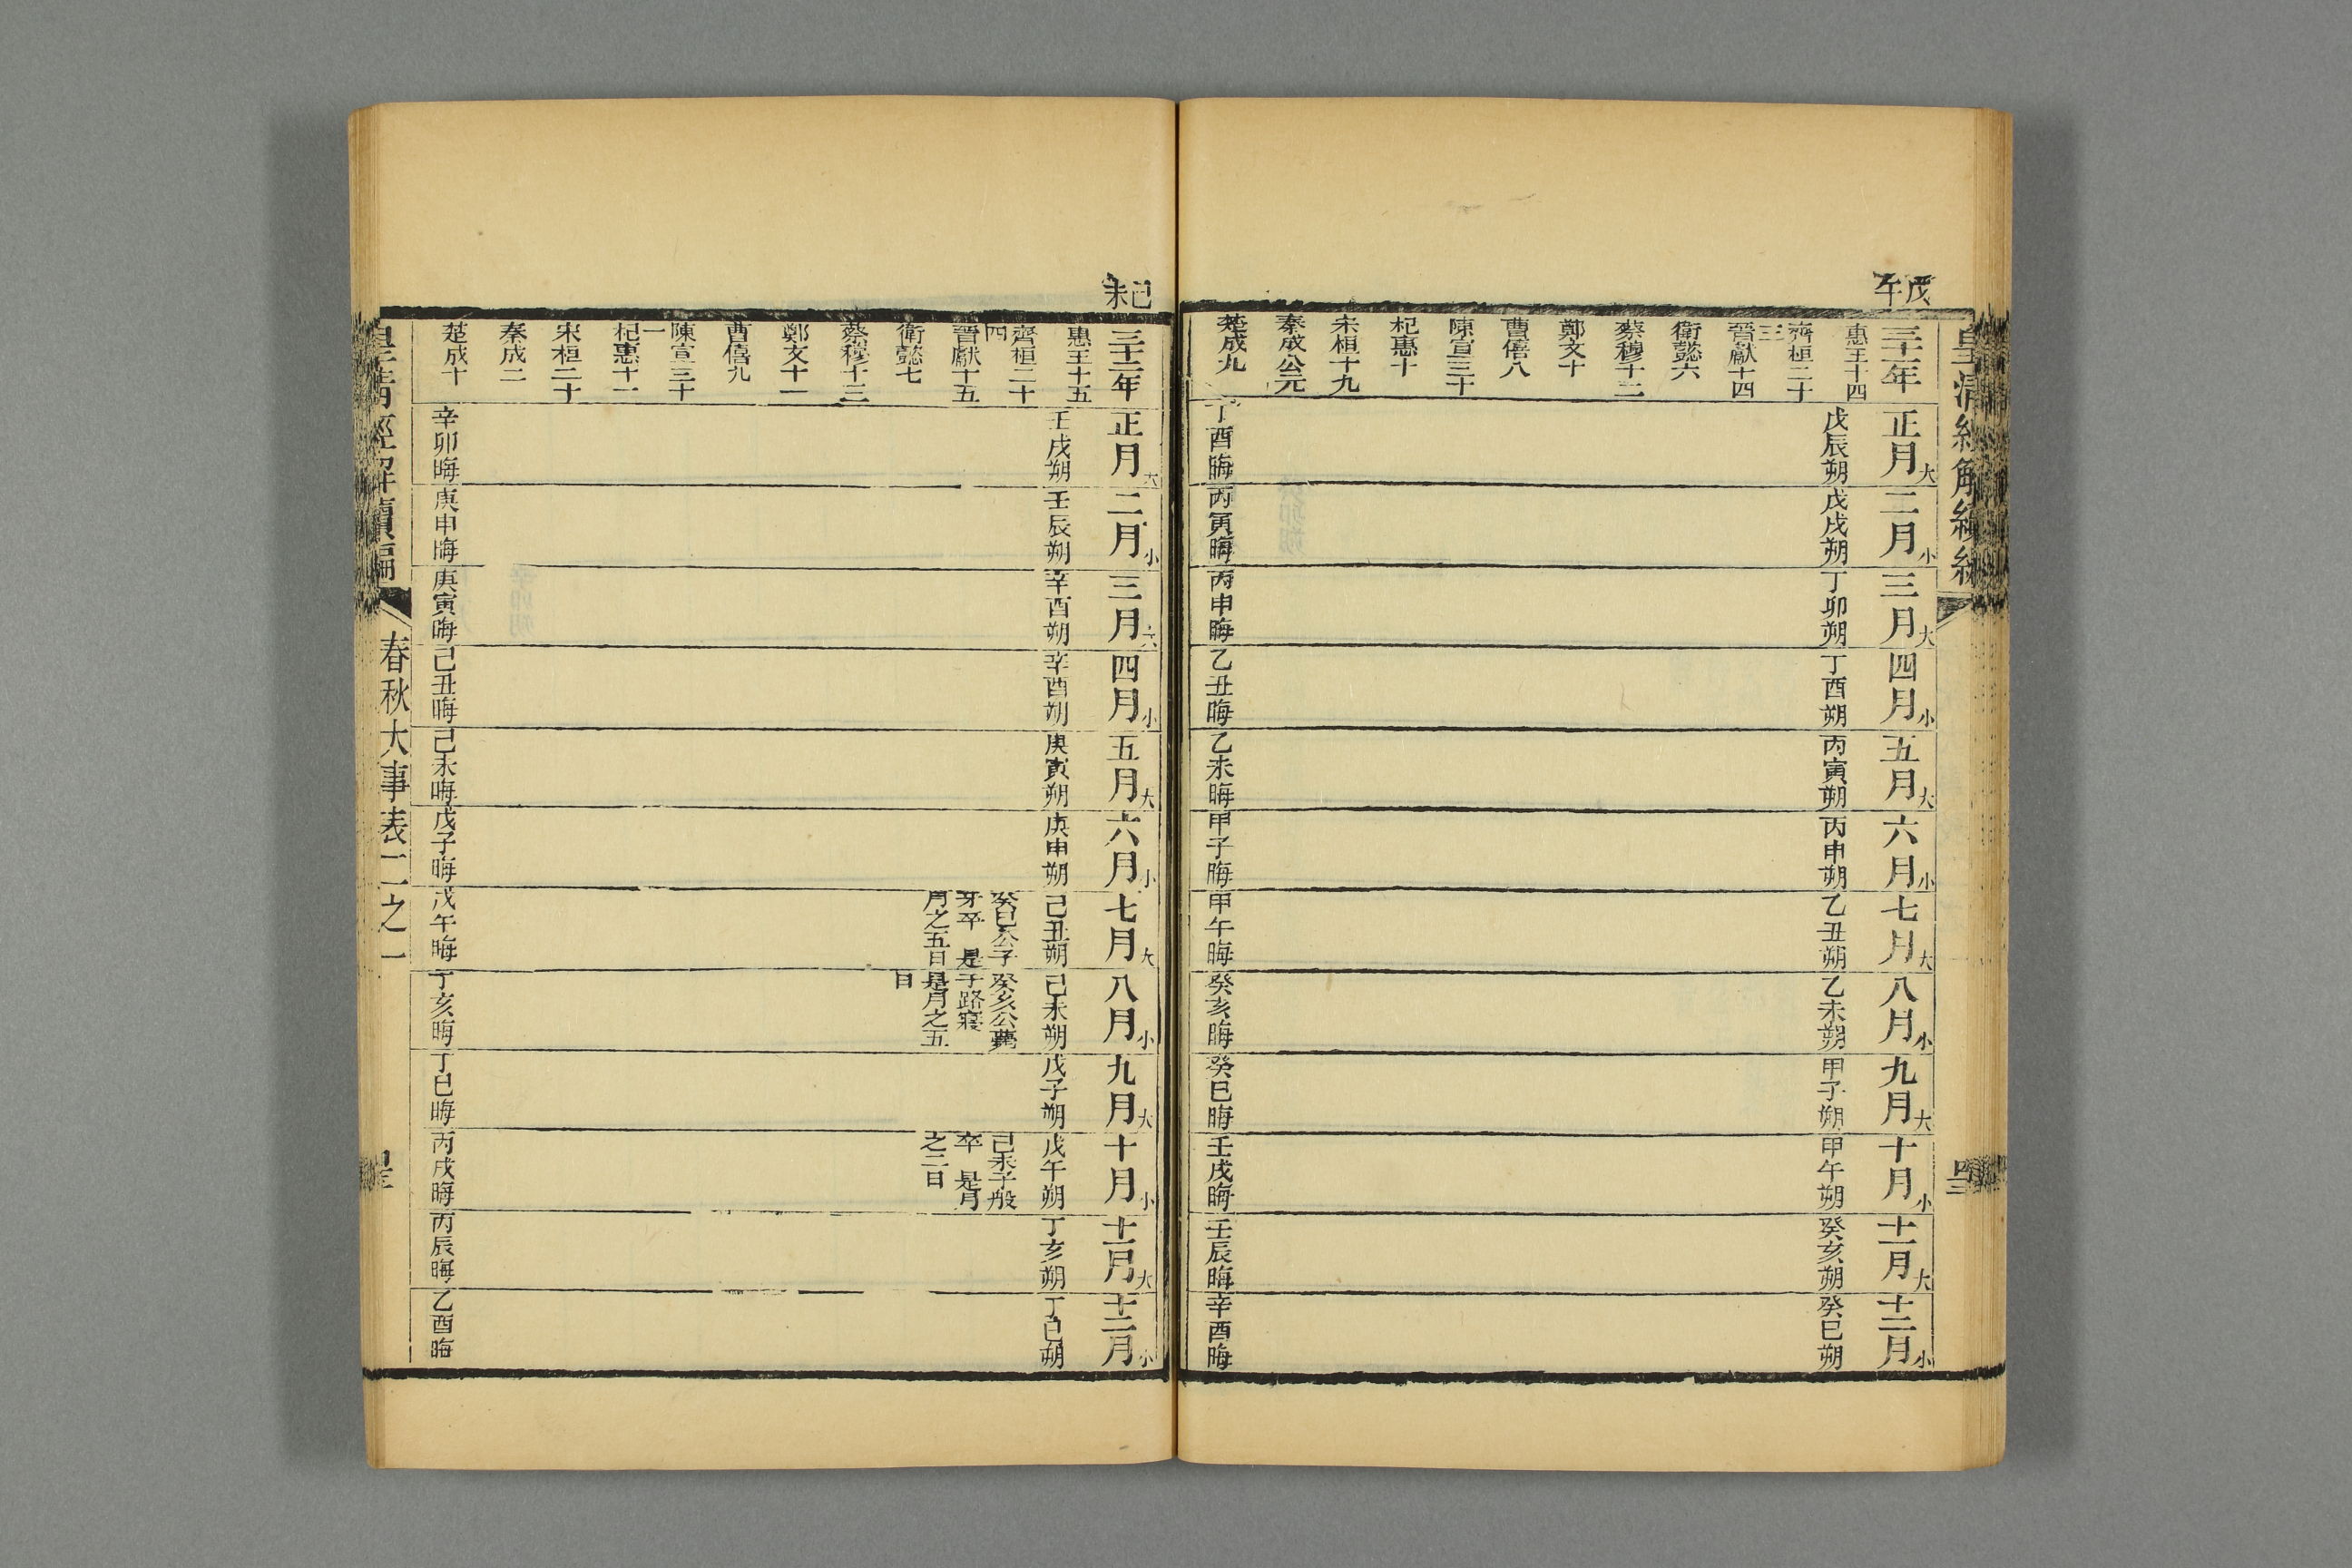 皇清經解續編
四三
戊午
三十一年
惠王十四
齊桓二十
三
晉獻十四
衛懿六
蔡穆十二
鄭文十
曹僖八
陳宣三十
杞惠十
宋桓十九
秦成公元
楚成九
正月大
戊辰朔
丁酉晦
二月小
戊戌朔
丙寅晦
三月大
丁卯朔
丙申晦
四月小
丁酉朔
乙丑晦
五月大
丙寅朔
乙未晦
六月小
丙申朔
甲子晦
七月大
乙丑朔
甲午晦
八月小
乙未朔
癸亥晦
九月大
甲子朔
癸巳晦
十月小
甲午朔
壬戌晦
十一月大
癸亥朔
壬辰晦
十二月小
癸巳朔
辛酉晦
己未
三十二年
惠王十五
齊桓二十
四
晉獻十五
衛懿七
蔡穆十三
鄭文十一
曹僖九
陳宣三十
一
杞惠十一
宋桓二十
秦成二
楚成十
正月大
壬戌朔
辛卯晦
二月小
壬辰朔
庚申晦
三月大
辛酉朔
庚寅晦
四月小
辛酉朔
己丑晦
五月大
庚寅朔
己未晦
六月小
庚申朔
戊子晦
七月大
己丑朔
癸巳公子
牙卒 是
月之五日
戊午晦
八月小
己未朔
癸亥公薨
于路寢
是月之五
日
丁亥晦
九月大
戊子朔
丁巳晦
十月小
戊午朔
己未子般
卒 是月
之二日
丙戌晦
十一月大
丁亥朔
丙辰晦
十二月小
丁巳朔
乙酉晦
皇清經解續編
春秋大事表二之一